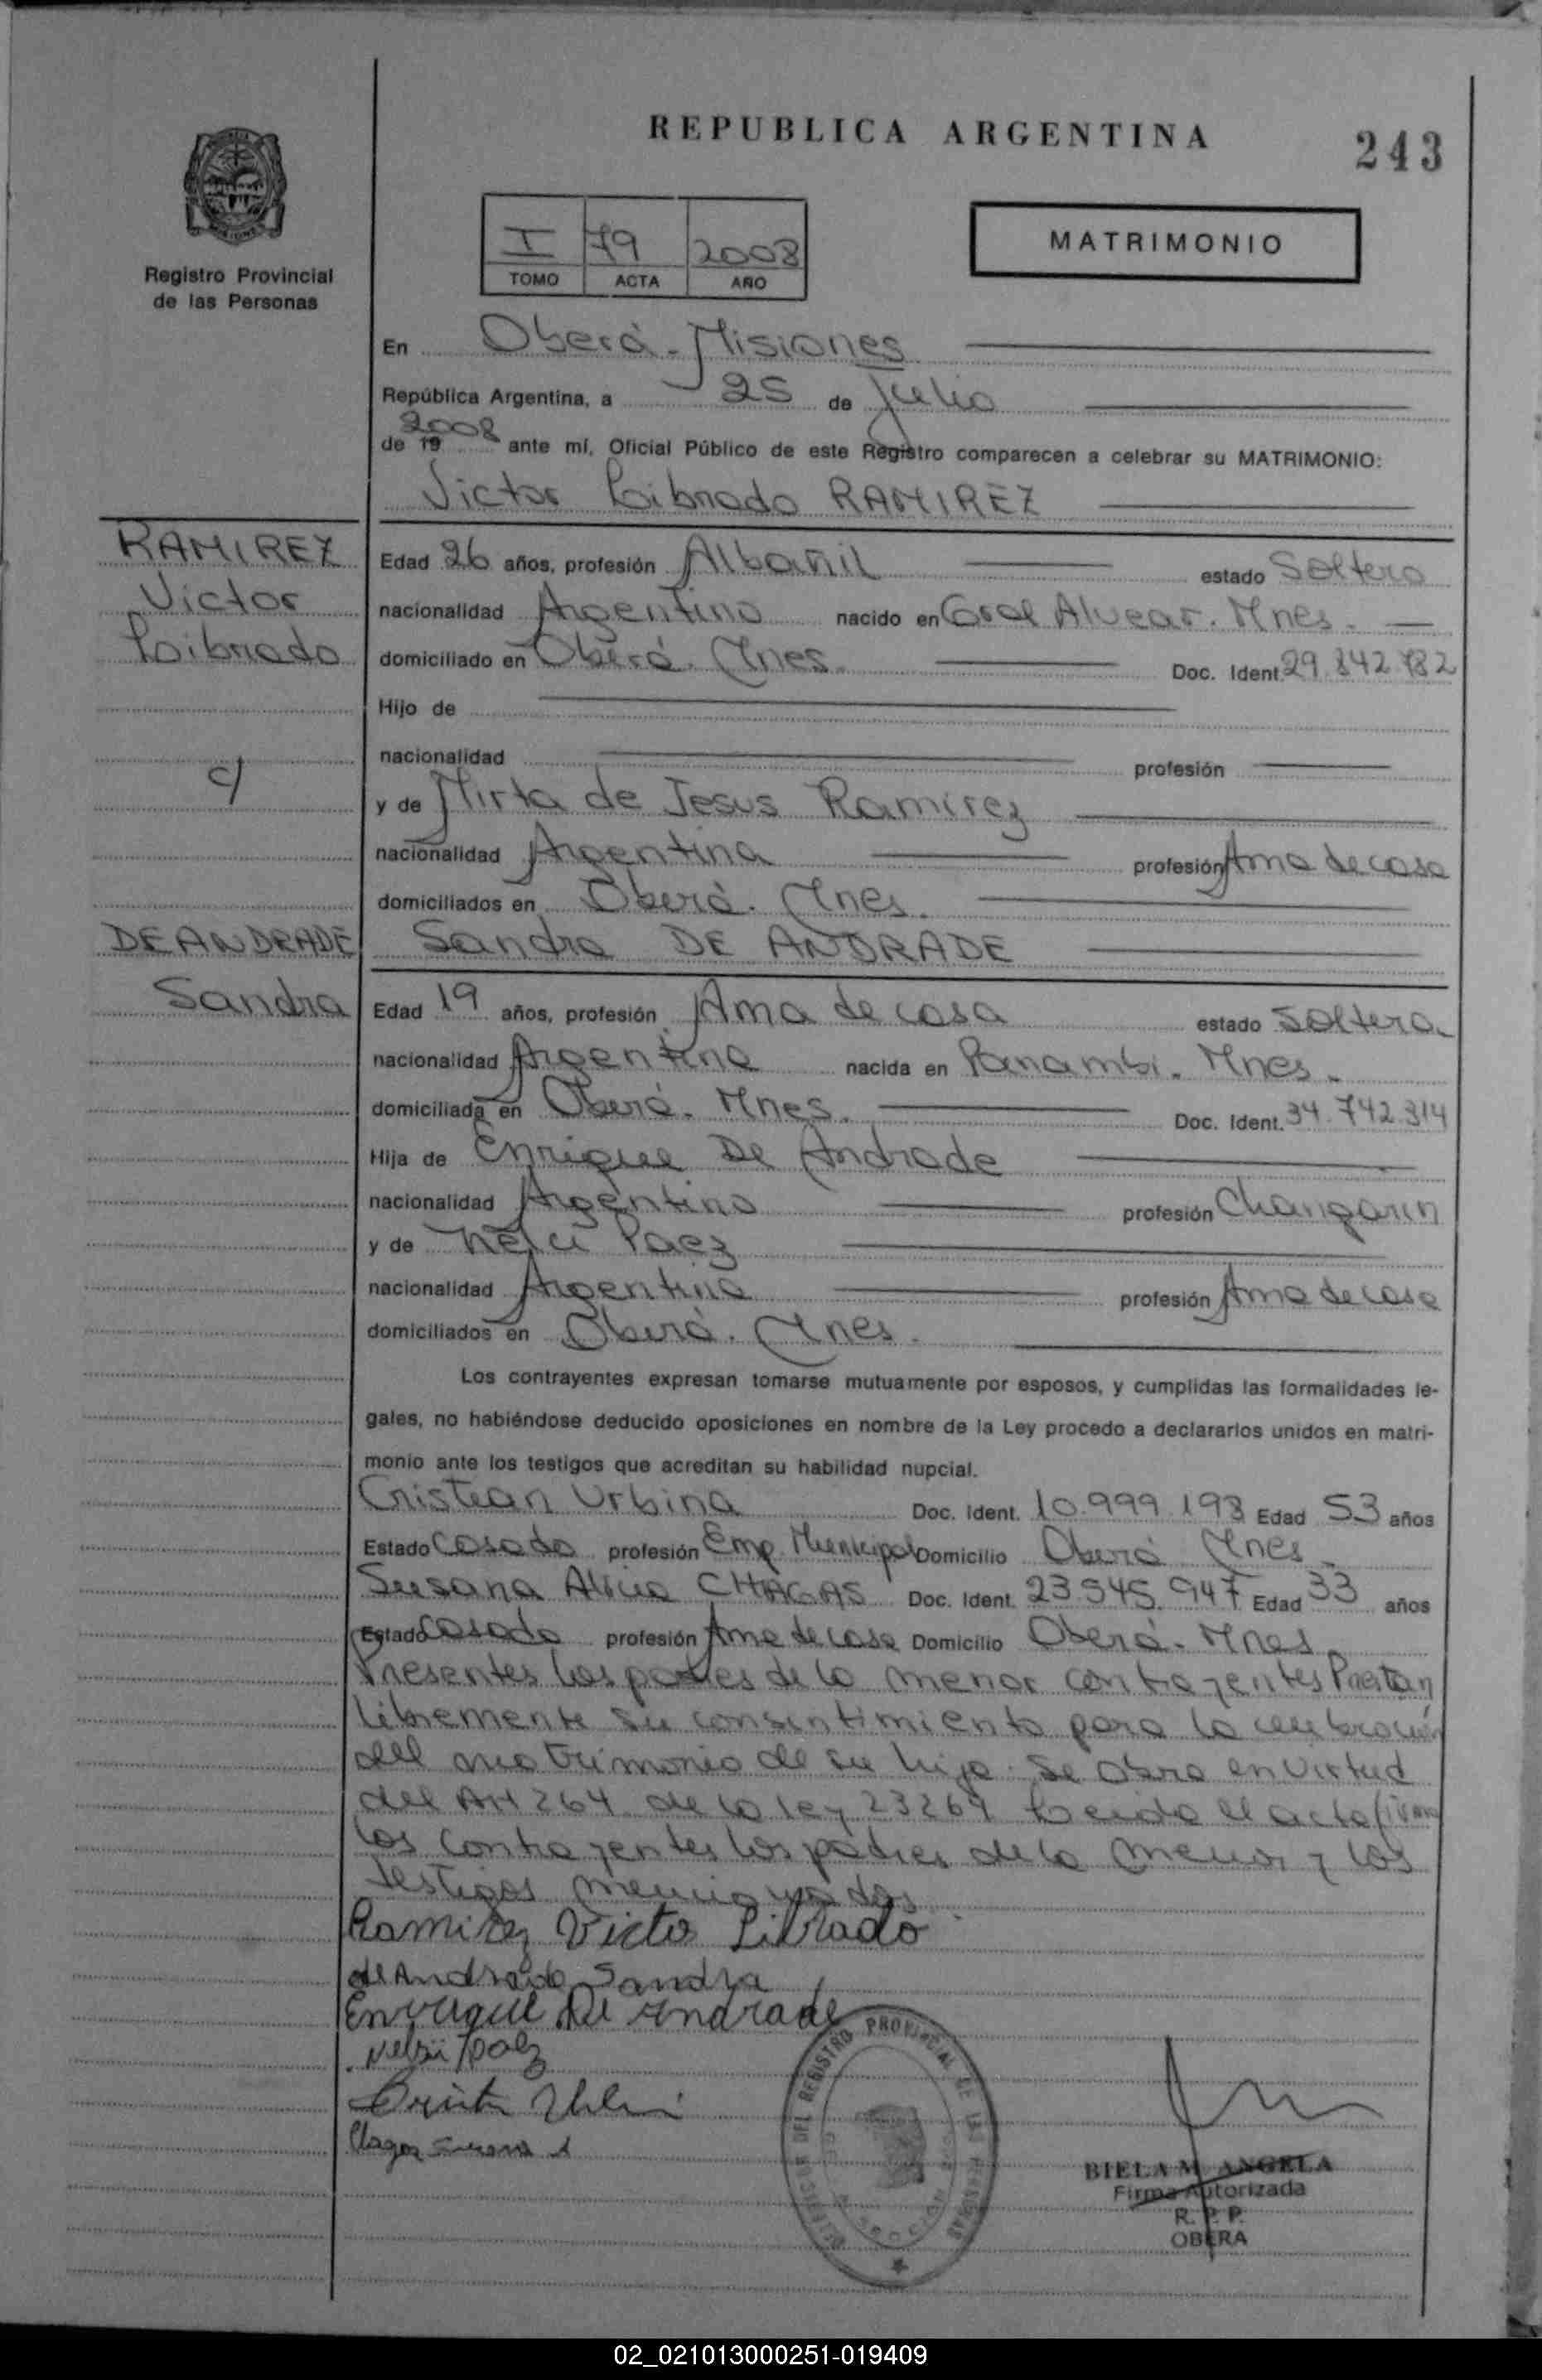 REPUBLICA ARGENTINA
243
Registro Provincial
de las Personas
I 79 2008
TOMO ACTA AÑO
MATRIMONIO
En Oberá - Misiones
República Argentina, a 25 de Julio
de 19 2008 ante mí, Oficial Público de este Registro comparecen a celebrar su MATRIMONIO:
Victor Librado RAMIREZ
RAMIREZ
Victor
Librado
c/
DE ANDRADE
Sandra
Edad 26 años, profesión Albañil estado Soltero
nacionalidad Argentino nacido en Gral Alvear. Mnes.
domiciliado en Oberá. Mnes. Doc. Ident. 29.842.782
Hijo de
nacionalidad profesión
y de Mirta de Jesus Ramirez
nacionalidad Argentina profesión Ama de casa
domiciliados en Oberá. Mnes.
Sandra DE ANDRADE
Edad 19 años, profesión Ama de casa estado Soltera
nacionalidad Argentina nacida en Panambi. Mnes.
domiciliada en Oberá. Mnes. Doc. Ident. 34.742.314
Hija de Enrique De Andrade
nacionalidad Argentino profesión Changarin
y de Paez
nacionalidad Argentina profesión Ama de casa
domiciliados en Oberá. Mnes.
Los contrayentes expresan tomarse mutuamente por esposos, y cumplidas las formalidades le-
gales, no habiéndose deducido oposiciones en nombre de la Ley procedo a declararlos unidos en matri-
monio ante los testigos que acreditan su habilidad nupcial.
Cristian Urbina Doc. Ident. 10.999.193 Edad 53 años
Estado Casado profesión Emp. Municipal Domicilio Oberá Mnes.
Susana Alicia CHAGAS Doc. Ident. 23.545.947 Edad 33 años
Estado Casada profesión Ama de casa Domicilio Oberá. Mnes.
Presentes los padres de la menor contrayentes Prestan
libremente su consentimiento para la celebración
del matrimonio de su hija. Se obra en virtud
del Art 264 de la ley 23264 Leida el acta firman
los contrayentes los padres de la menor y los
testigos mencionados
Ramirez Victor Librado
de Andrade Sandra
Enrique De Andrade
Paez
Chagas Susana A
REGISTRO PROVINCIAL DE LAS PERSONAS
BIELA M. ANGELA
Firma Autorizada
R. P. P.
OBERA
02_021013000251-019409